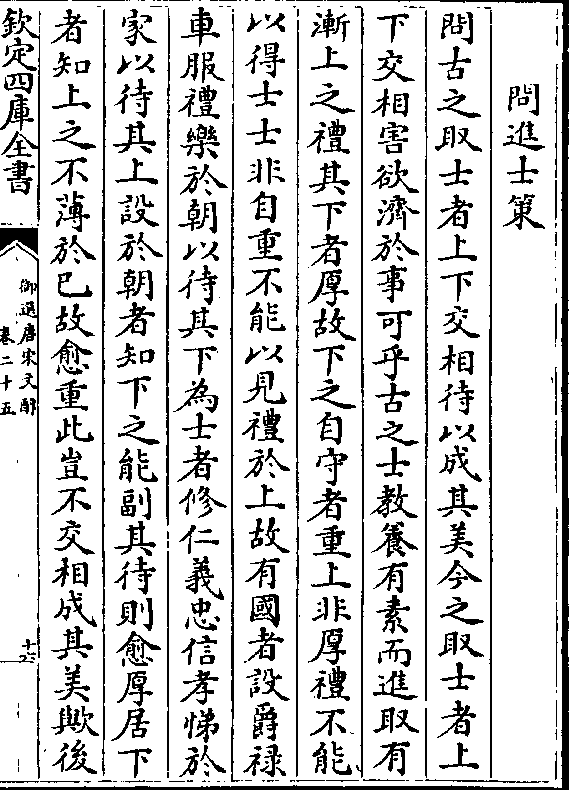 問進士策
問古之取士者上下交相待以成其美今之取士者上
下交相害欲濟於事可乎古之士教養有素而進取有
漸上之禮其下者厚故下之自守者重上非厚禮不能
以得士士非自重不能以見禮於上故有國者設爵祿
車服禮樂於朝以待其下為士者修仁義忠信孝悌於
家以待其上設於朝者知下之能副其待則愈厚居下
者知上之不薄於已故愈重此豈不交相成其美歟後
欽定四庫全書
御選唐宋文醇
卷二十五
十六